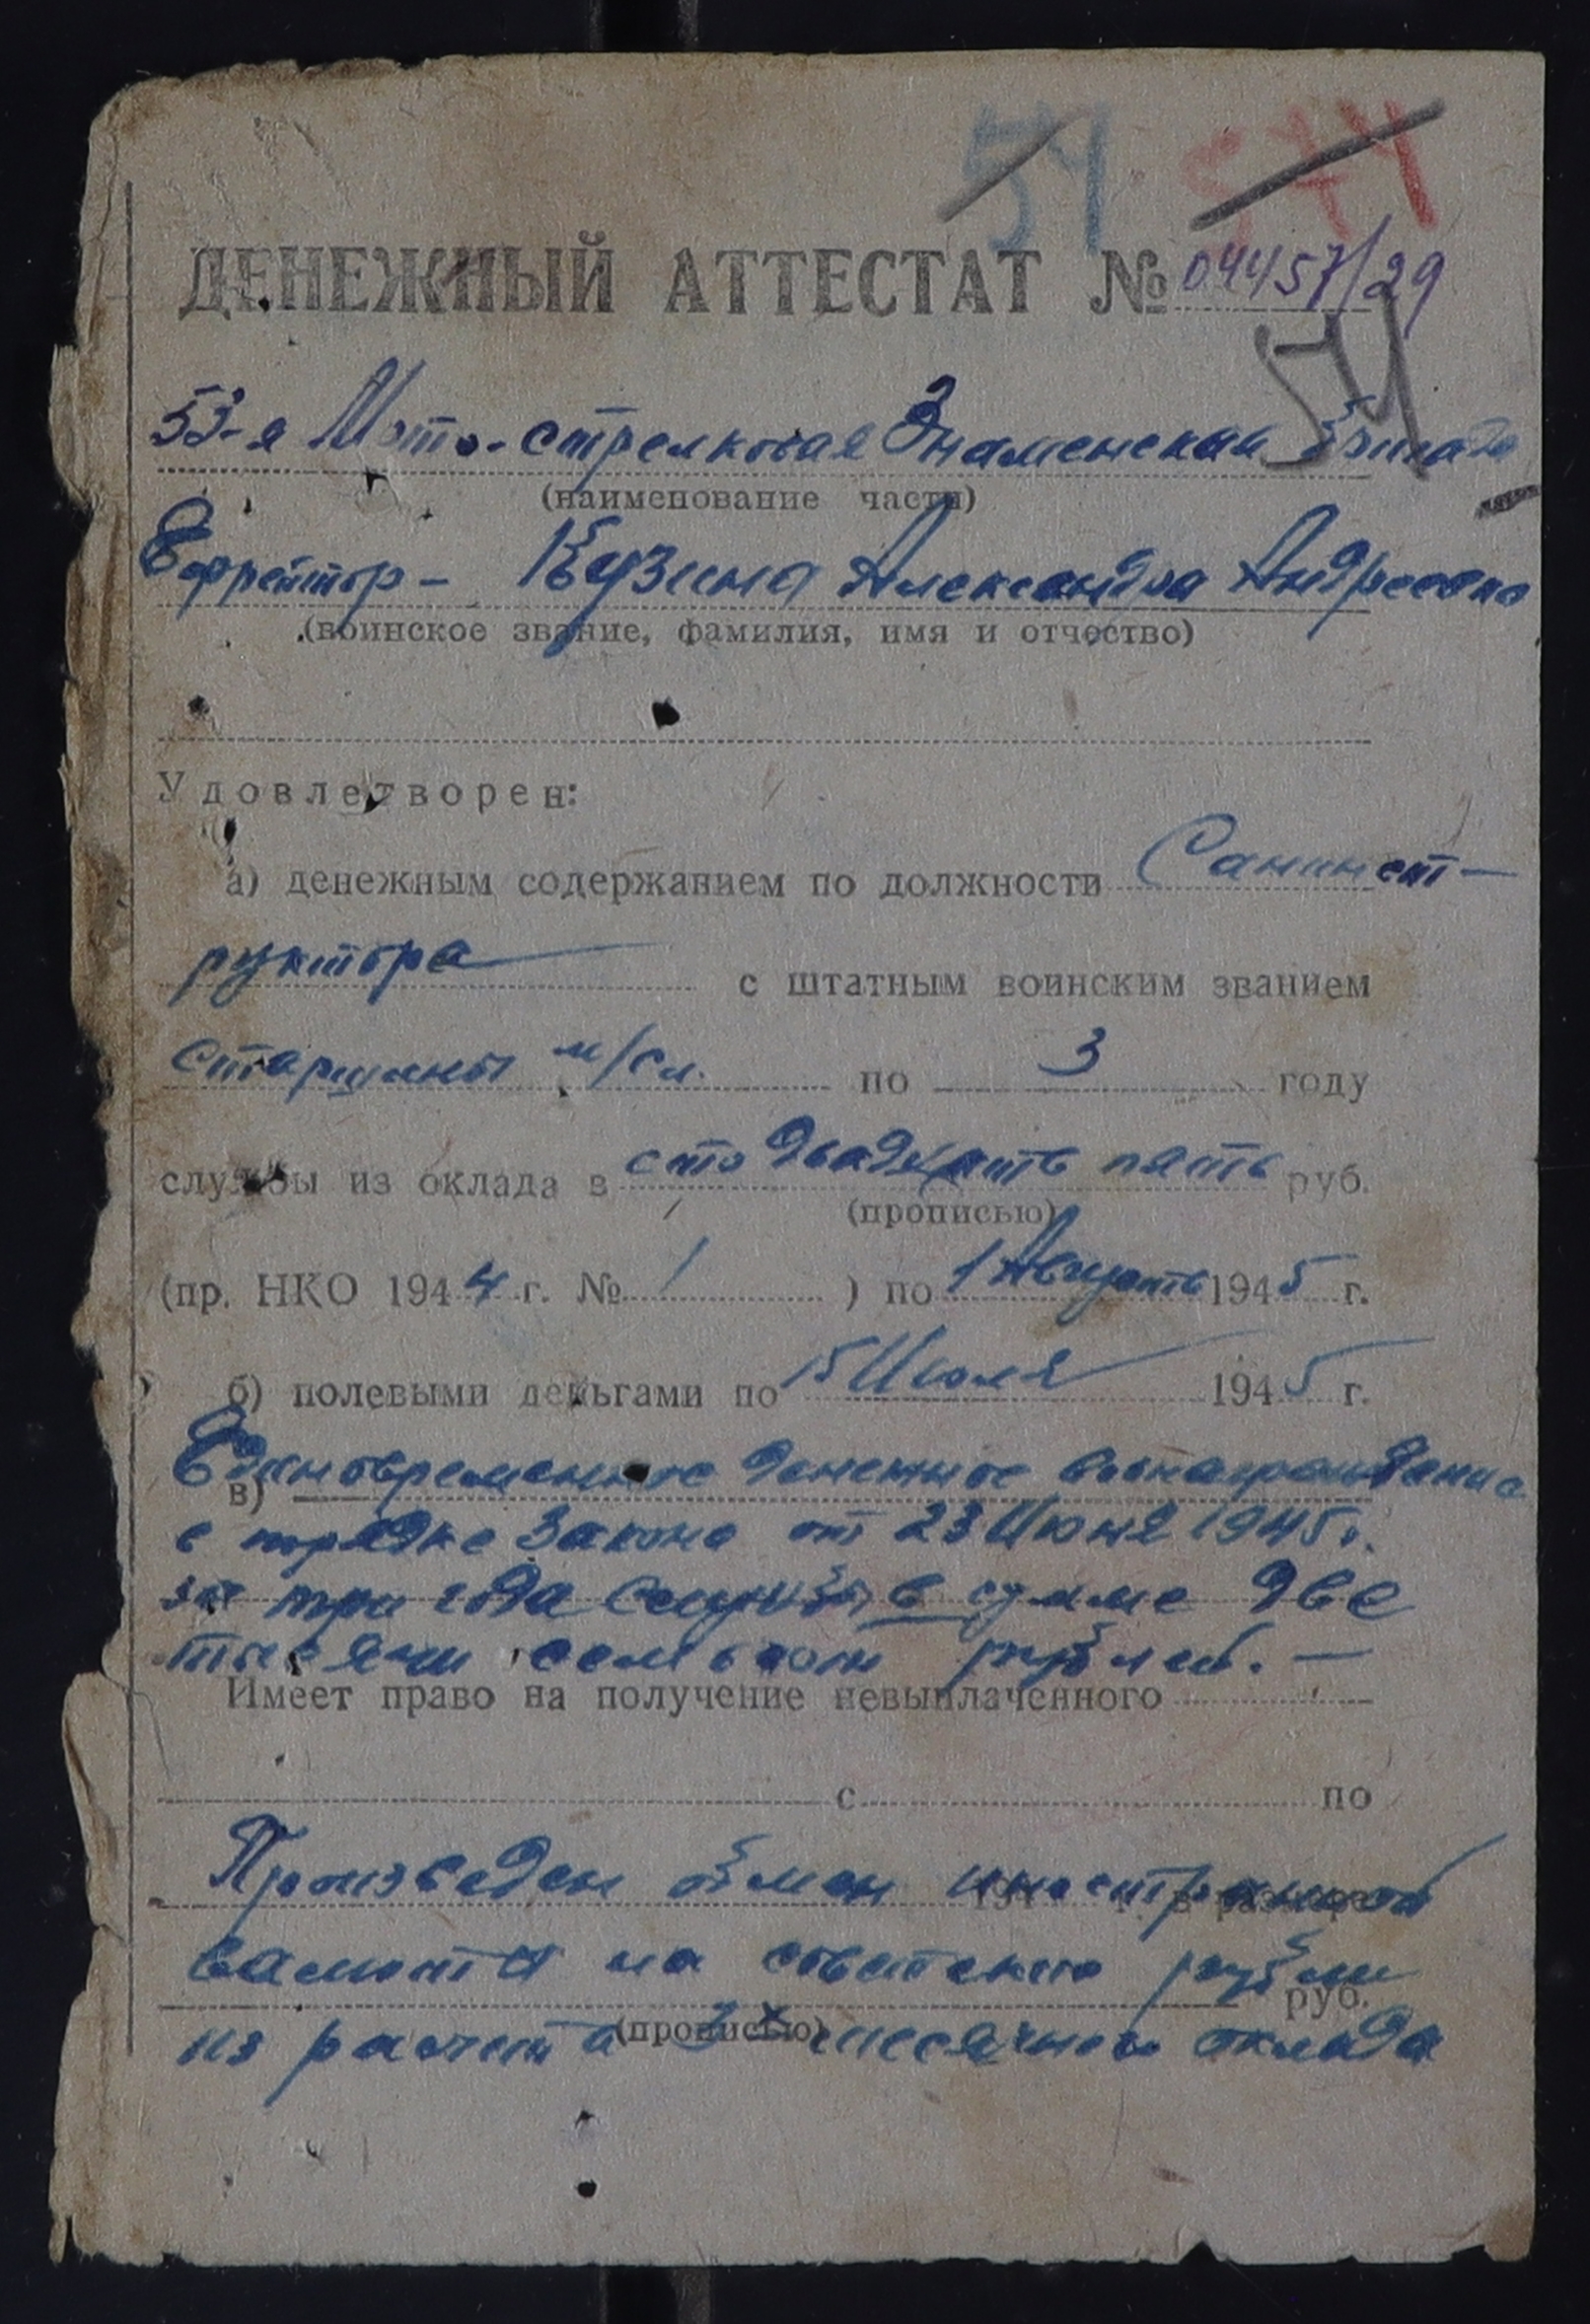 54 544
ДЕНЕЖНЫЙ АТТЕСТАТ № 04457/29
54
53-я Мото-стрелковая Знаменская Бригада
(наименование части)
Ефрейтор - Кузина Александра Андреевна
(воинское звание, фамилия, имя и отчество)
Удовлетворен:
а) денежным содержанием по должности Санинст-
руктора с штатным воинским званием
старшины м/сл. по 3 году
службы из оклада в сто двадцать пять руб.
(прописью)
(пр. НКО 1944 г. № 1 ) по 1 Августа 1945 г.
б) полевыми деньгами по 15 Июля 1945 г.
в) Единовременное денежное вознаграждение
в порядке Закона от 23 Июня 1945 г.
за три года службы в сумме две
тысячи семьсот рублей. —
Имеет право на получение невыплаченного
с по
Произведен обмен иностранной
194 г. в размере
валюты на советские рубли
руб.
(прописью)
из расчета 3х месячного оклада